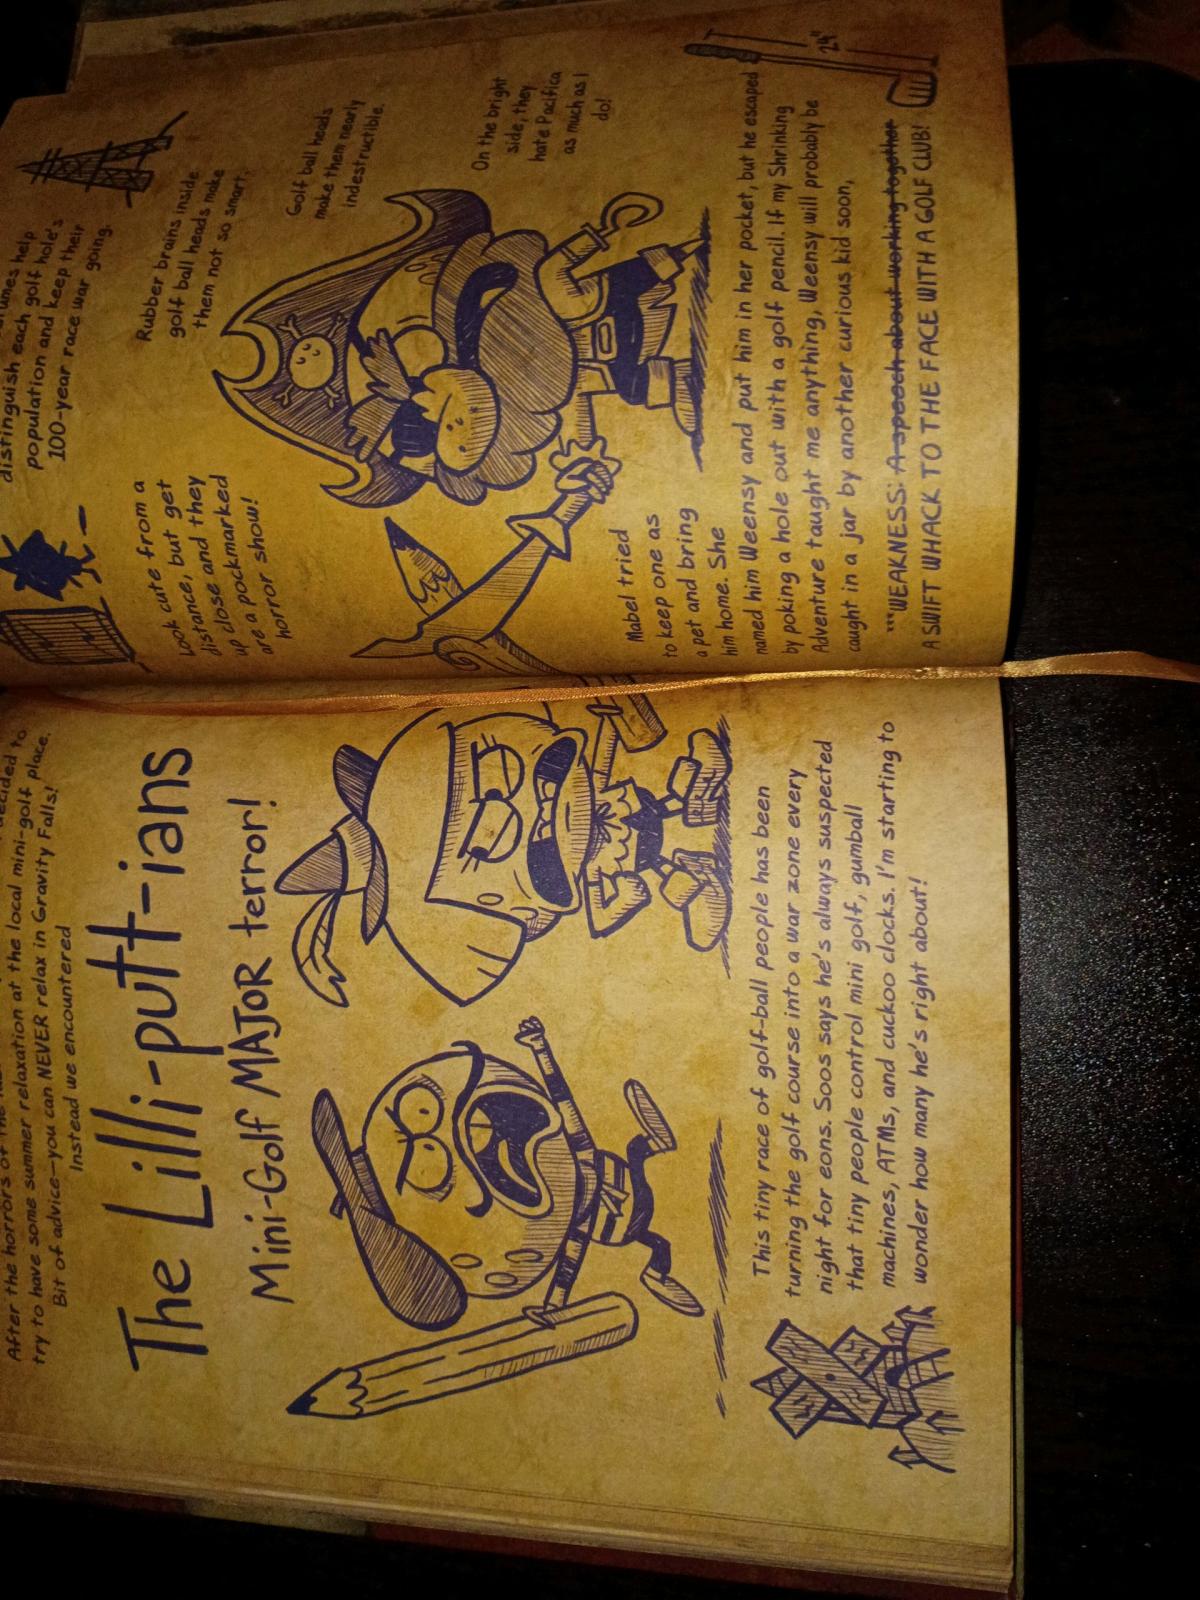 After the horrors of the
decided to
try to have some summer relaxation at the local mini-golf place.
Bit of advice—you can NEVER relax in Gravity Falls!
Instead we encountered
The Lilli-putt-ians
Mini-Golf MAJOR terror!
This tiny race of golf-ball people has been
turning the golf course into a war zone every
night for eons. Soos says he's always suspected
that tiny people control mini golf, gumball
machines, ATMs, and cuckoo clocks. I'm starting to
wonder how many he's right about!
distinguish each golf hole's
help
population and keep their
100-year race war going.
Look cute from a
distance, but get
close and they
up close pockmarked
are a
horror show!
Rubber brains inside
golf ball heads make
them not so smart.
Golf ball heads
make them nearly
indestructible.
On the bright
side, they
hate Pacifica
as much as I
do!
Mabel tried
to keep one as
a pet and bring
him home. She
named him Weensy and put him in her pocket, but he escaped
by poking a hole out with a golf pencil. If my Shrinking
Adventure taught me anything, Weensy will probably be
caught in a jar by another curious kid soon,
***WEAKNESS: A speech about working together
A SWIFT WHACK TO THE FACE WITH A GOLF CLUB!
24"